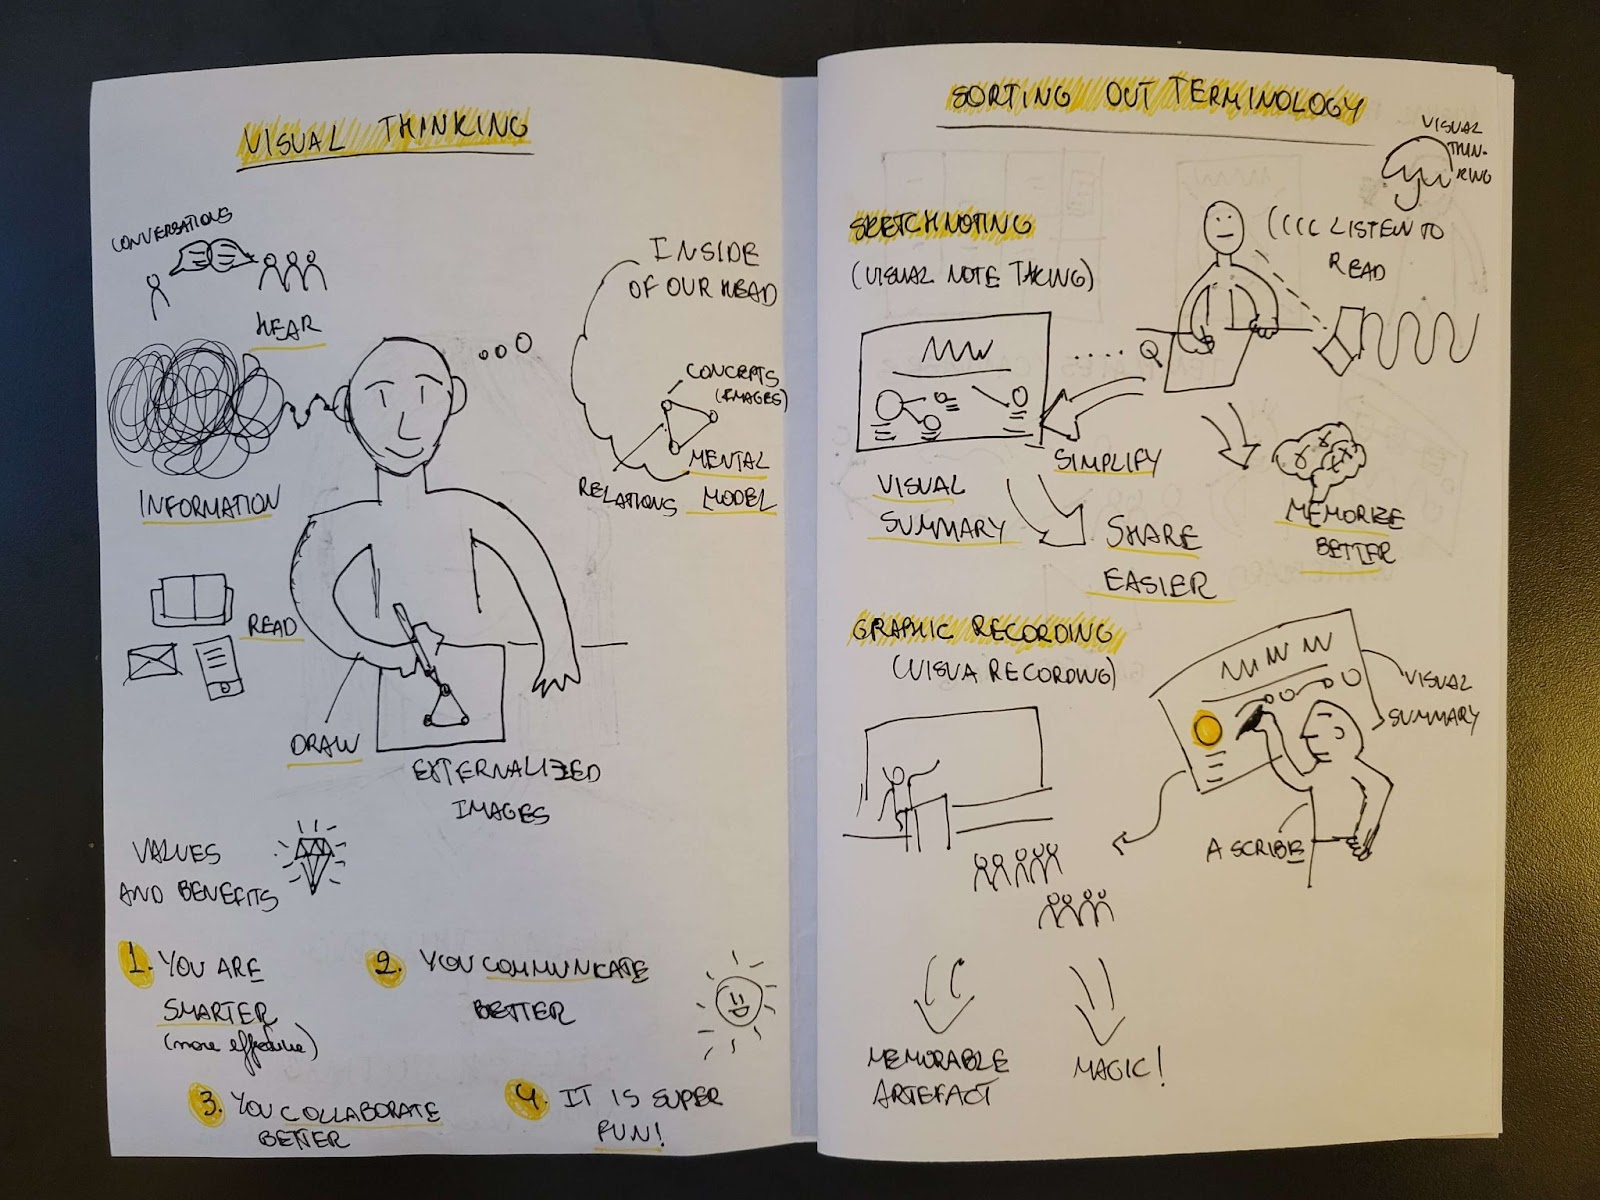 VISUAL THINKING
CONVERSATIONS
HEAR
INSIDE
OF OUR HEAD
CONCEPTS
(IMAGES)
RELATIONS
MENTAL
MODEL
INFORMATION
READ
DRAW
EXTERNALIZED
IMAGES
VALUES
AND BENEFITS
1. YOU ARE
SMARTER
(more effective)
2. YOU COMMUNICATE
BETTER
3. YOU COLLABORATE
BETTER
4. IT IS SUPER
FUN!
SORTING OUT TERMINOLOGY
VISUAL
THIN-
KING
SKETCHNOTING
(VISUAL NOTE TAKING)
LISTEN TO
READ
SIMPLIFY
VISUAL
SUMMARY
SHARE
EASIER
MEMORIZE
BETTER
GRAPHIC RECORDING
(VISUA RECORDING)
VISUAL
SUMMARY
A SCRIBE
MEMORABLE
ARTEFACT
MAGIC!